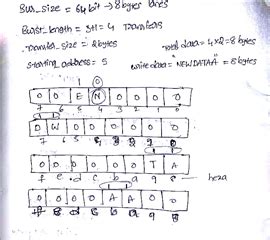 Bus_size = 64 bit → 8 bytes lanes
Burst_length = 3+1 = 4 Transfers
Transfer_size = 2 bytes
Total data = 4x2 = 8 bytes
starting address = 5
write data = "NEWDATAA" = 8 bytes
1 0
0 0 E N 0 0 0 0
7 6 5 4 3 2 1 0
0 W 0 0 0 0 0 0
7 6 5 4 3 2
0 0 0 0 0 0 T A
f e d c b a 9 8
hexa
0 0 0 0 A A 0 0
d c b a 9 8